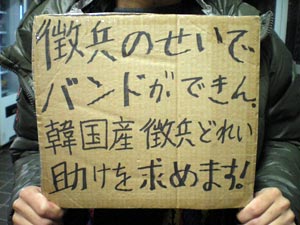 徴兵のせいで
バンドができん。
韓国産徴兵どれい
助けを求めます!